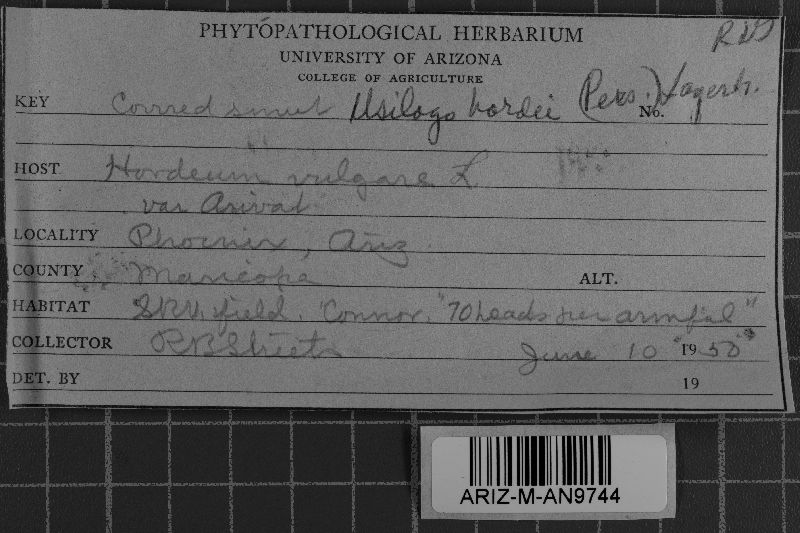 PHYTOPATHOLOGICAL HERBARIUM
UNIVERSITY OF ARIZONA
COLLEGE OF AGRICULTURE
KEY Covered smut Usilago hordei (Pers.) Lagerh.
No.
HOST Hordeum vulgare L
var Arivat
LOCALITY Phoenix, Ariz
COUNTY Maricopa ALT.
HABITAT field. Connor. "70 heads per armful"
COLLECTOR RB Streets June 10 1950
DET. BY 19
ARIZ-M-AN9744